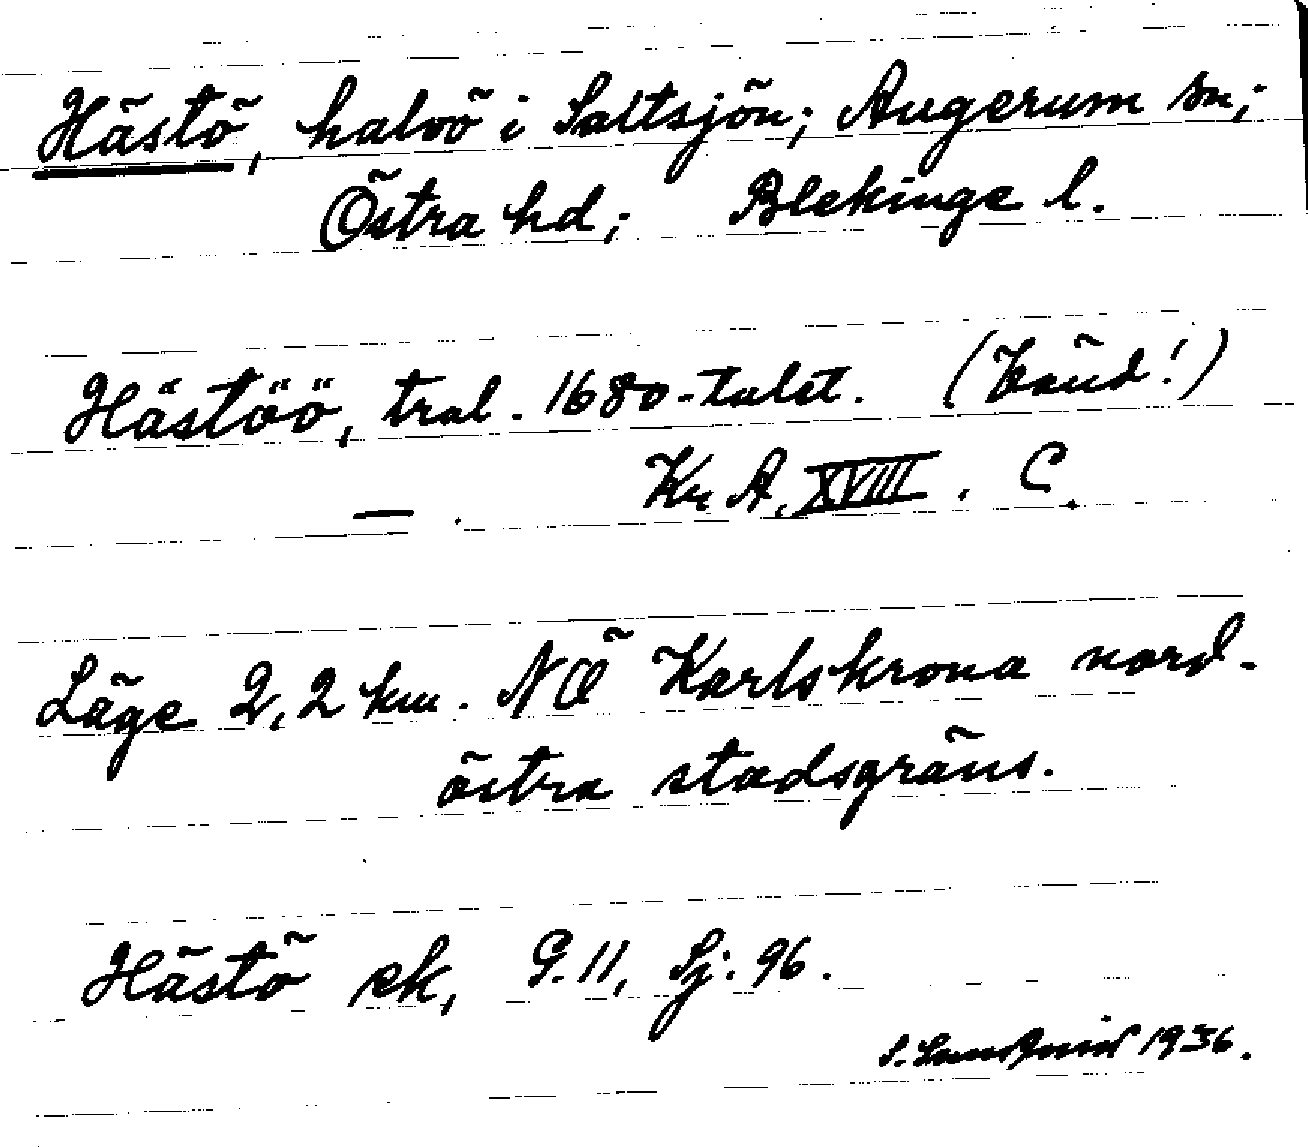 Hästö, halvö i Saltsjön; Augerum sn;
Östra hd; Blekinge l.
Hästöö, tral. 1680-talet. (Eänd!)
Kr A. XVIII. C.
—.
Läge 2,2 km. NÖ Karlskrona nord-
östra stadsgräns.
Hästö ek, G. 11, Sj: 96.
S. 1936.